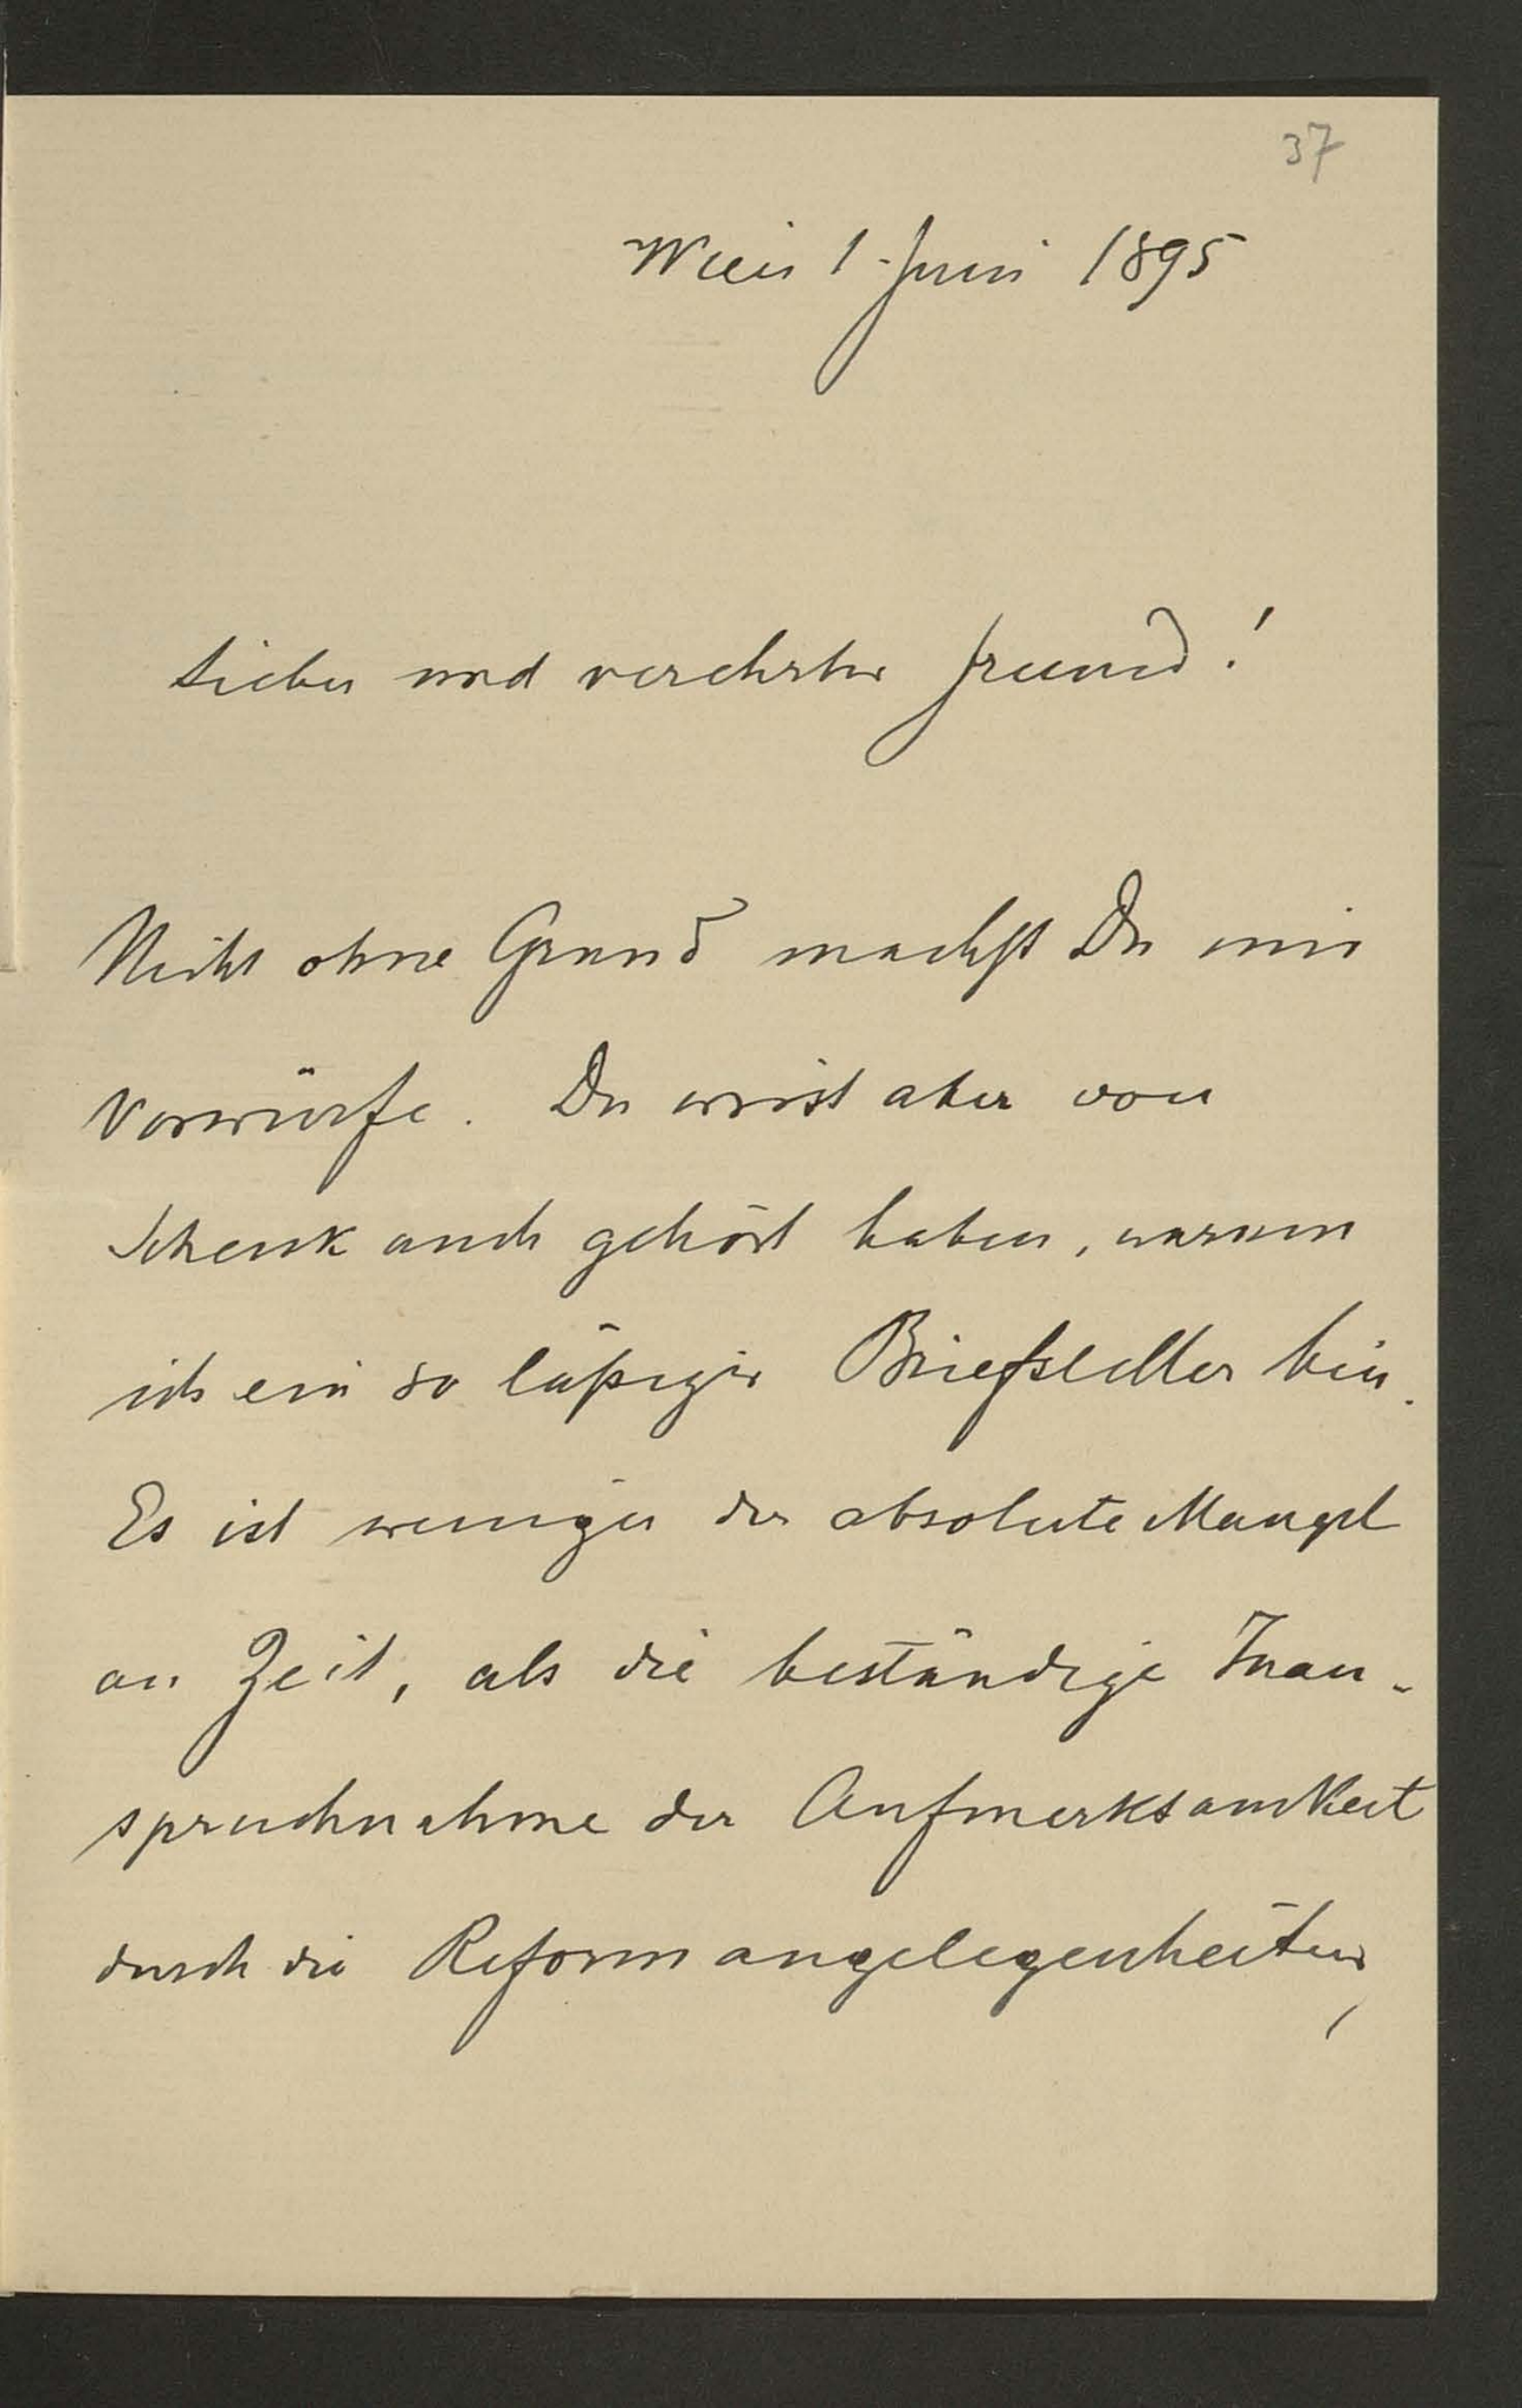 37
Wien 1. Juni 1895
Lieber und verehrter Freund!
Nicht ohne Grund machst Du mir
Vorwürfe. Du wirst aber von
Schenk auch gehört haben, warum
ich ein so läßiger Briefsteller bin.
Es ist weniger der absolute Mangel
an Zeit, als die beständige Inan-
spruchnahme der Aufmerksamkeit
durch die Reformangelegenheiten,